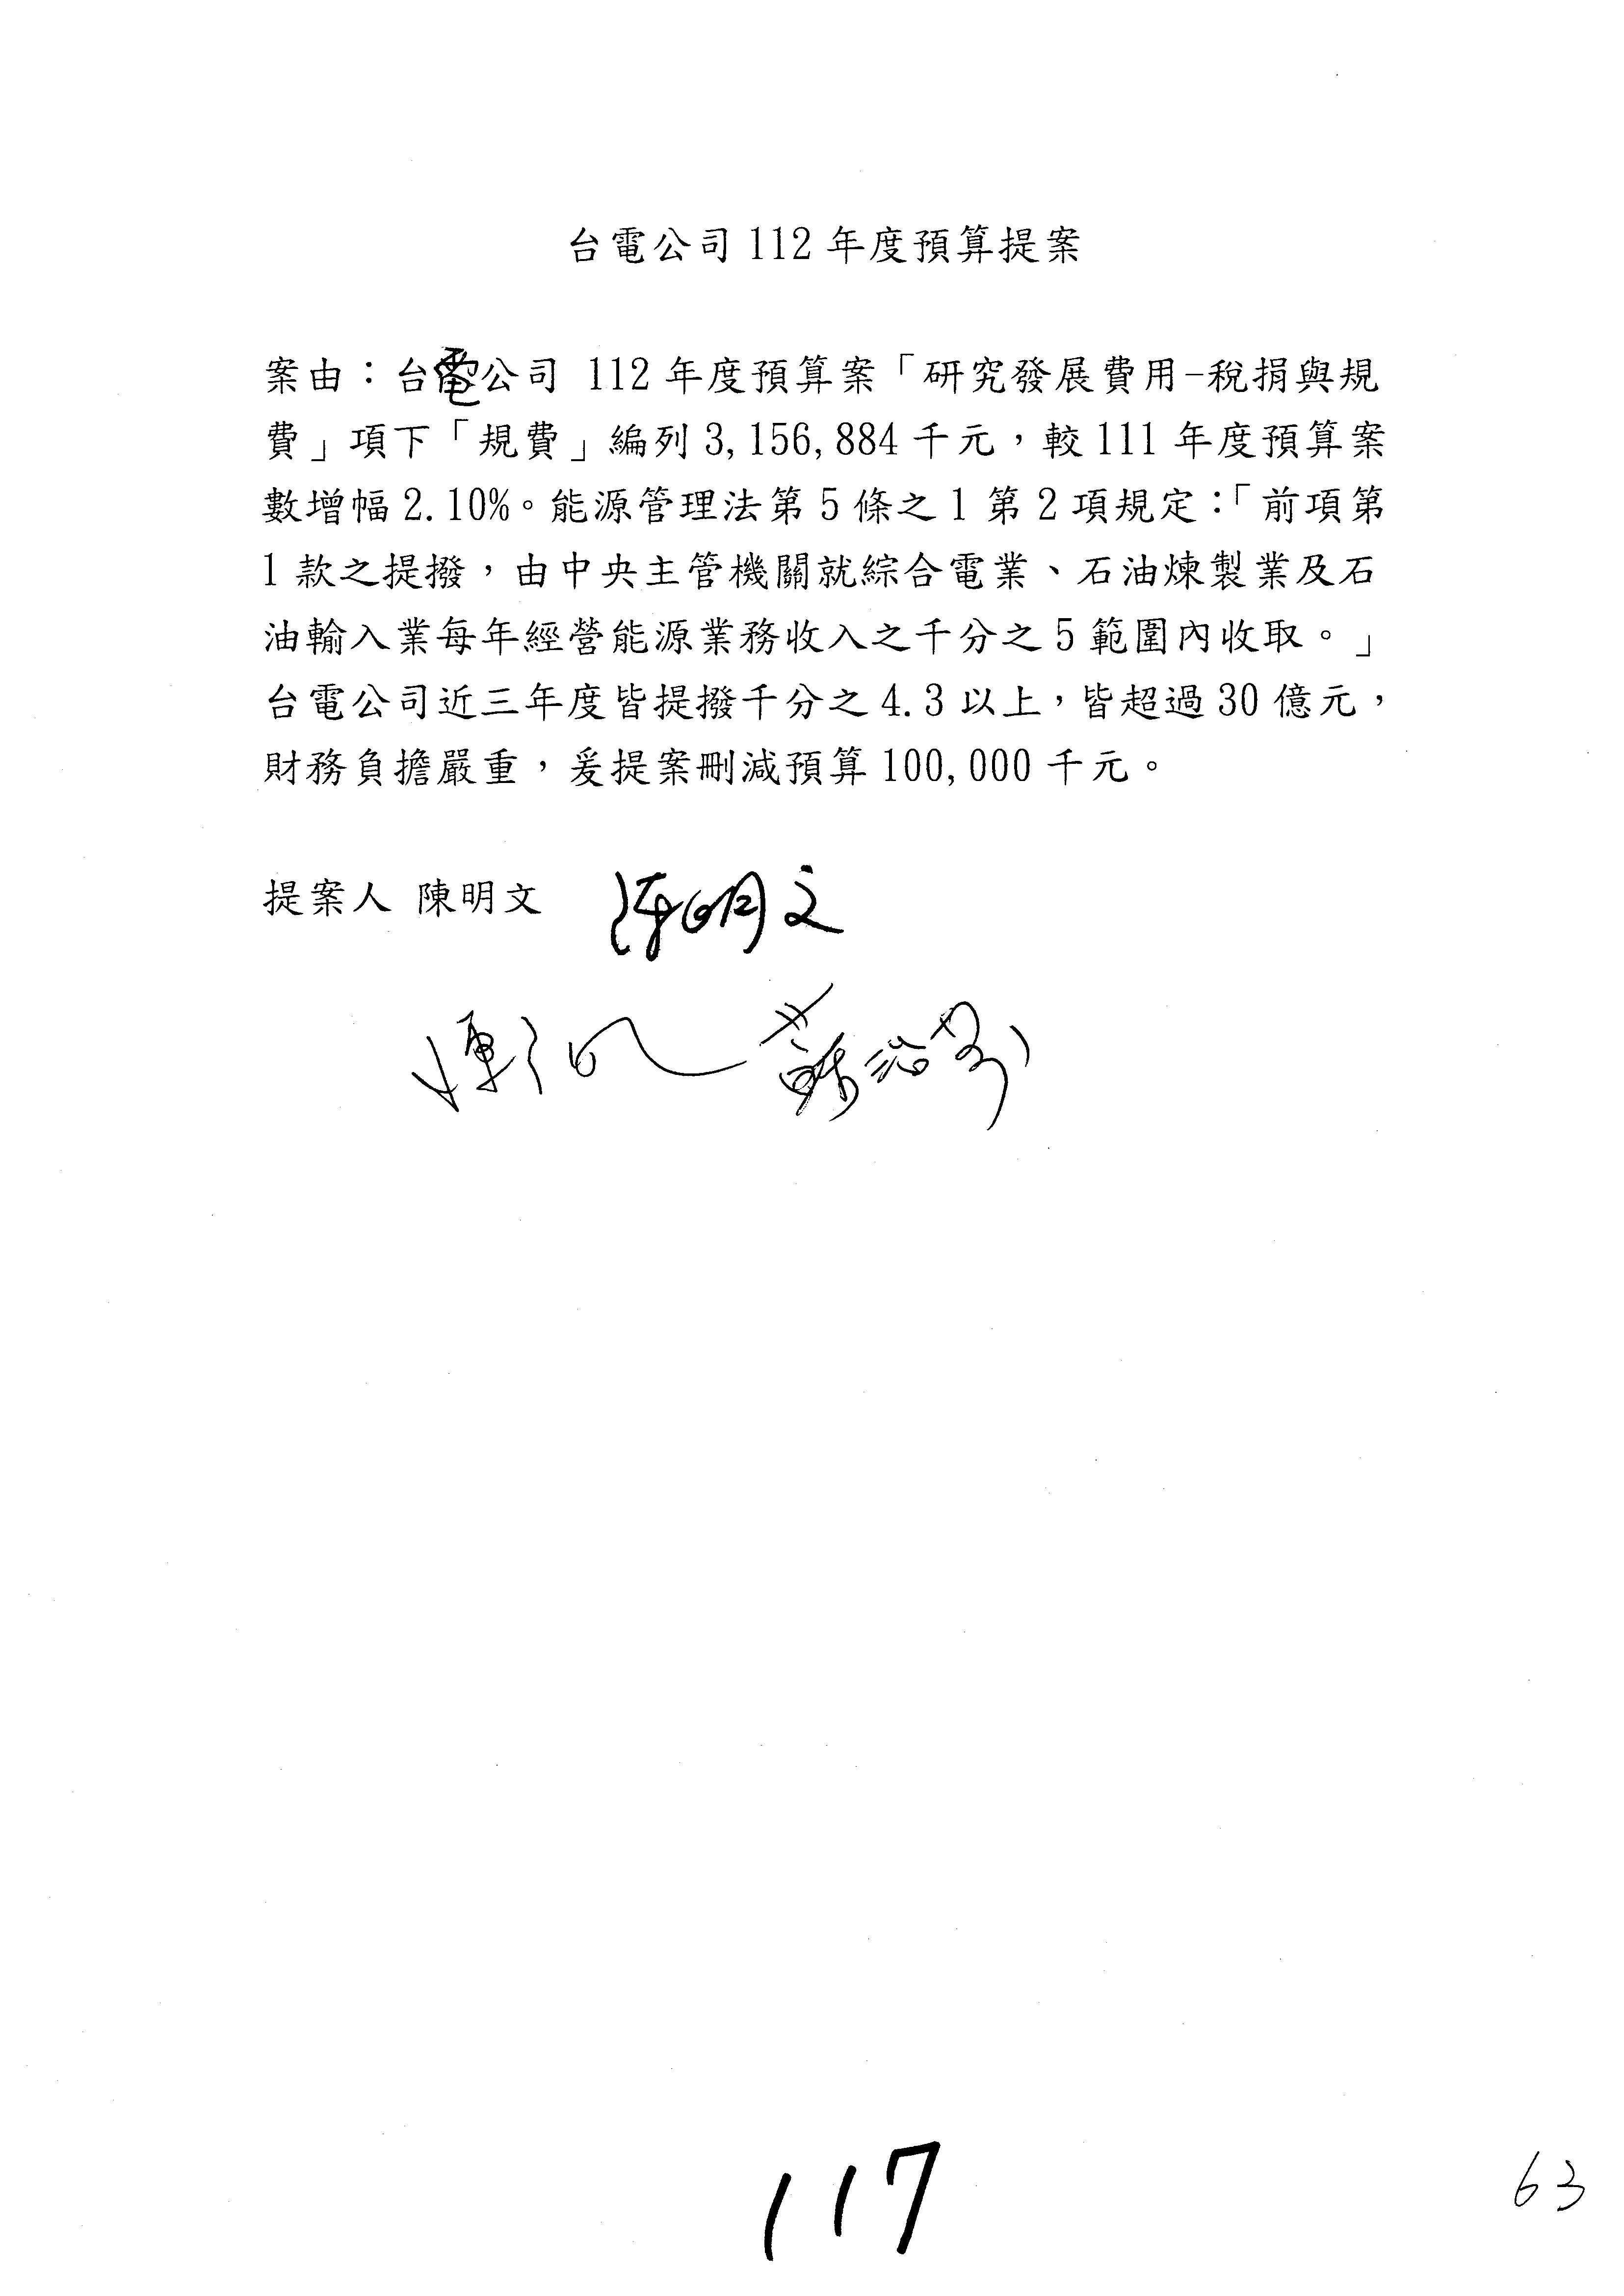 台電公司 112 年度預算提案
案由：台電公司 112 年度預算案「研究發展費用-稅捐與規
費」項下「規費」編列 3,156,884 千元，較 111 年度預算案
數增幅 2.10%。能源管理法第 5 條之 1 第 2 項規定：「前項第
1 款之提撥，由中央主管機關就綜合電業、石油煉製業及石
油輸入業每年經營能源業務收入之千分之 5 範圍內收取。」
台電公司近三年度皆提撥千分之 4.3 以上，皆超過 30 億元，
財務負擔嚴重，爰提案刪減預算 100,000 千元。
提案人 陳明文 陳明文
蘇治芬
117
63